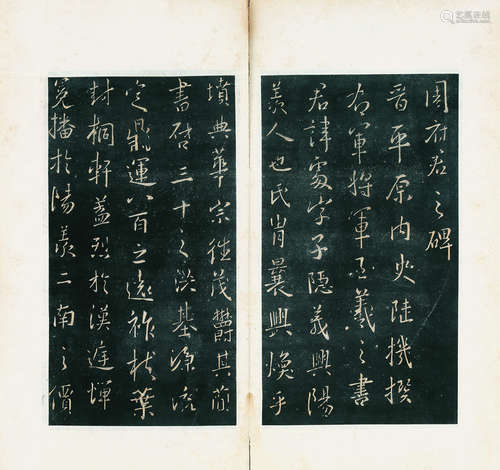 周府君之碑
晉平原内史陸機撰
右軍將軍王羲之書
君諱處字子隱義興陽
羨人也氏胄曩興煥乎
墳典華宗往茂欝其簡
書啓三十之洪基源流
定鼎運八百之遠祚枝葉
封桐軒蓋烈於漢庭蟬
冕播於陽羨二南之價